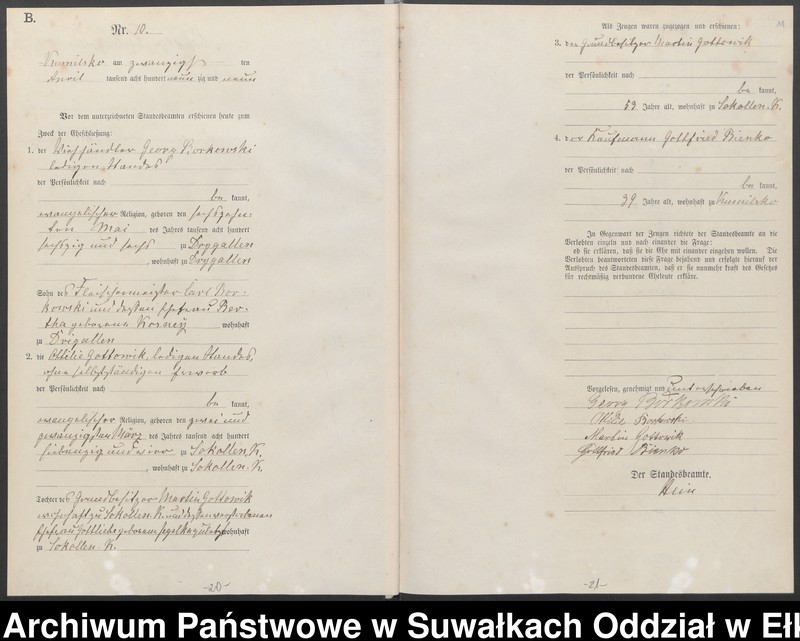 B.
Nr. 10.
Kumilsko am zwanzigs ten
April tausend acht hundert neun zig und neun
Vor dem unterzeichneten Standesbeamten erschienen heute zum
Zweck der Eheschließung:
1. der Viehhändler Georg Borkowski
ledigen Standes
der Persönlichkeit nach
be kannt,
evangelischer Religion, geboren den sechszehn-
ten Mai des Jahres tausend acht hundert
sechszig und sechs zu Drygallen
, wohnhaft zu Drygallen
Sohn des Fleischermeister Carl Bor-
kowski und dessen Ehefrau Ber-
tha geborene Korney wohnhaft
zu Drigallen
2. die Ottilie Gottowik, ledigen Standes,
ohne selbstständigen Erwerb
der Persönlichkeit nach
be kannt,
evangelischer Religion, geboren den zwei und
zwanzigsten März des Jahres tausend acht hundert
siebenzig und vier zu Sokollen K.
, wohnhaft zu Sokollen. K.
Tochter des Grundbesitzer Martin Gottowik
wohnhaft zu Sokollen K. und dessen verstorbenen
Ehefrau Gottliebe geborene wohnhaft
zu Sokollen. K.
-20-
Als Zeugen waren zugezogen und erschienen:
3. der Grundbesitzer Martin Gottowik
der Persönlichkeit nach
be kannt,
53 Jahre alt, wohnhaft zu Sokollen. K.
4. der Kaufmann Gottfried Bienko
der Persönlichkeit nach
be kannt,
39 Jahre alt, wohnhaft zu Kumilsko
In Gegenwart der Zeugen richtete der Standesbeamte an die
Verlobten einzeln und nach einander die Frage:
ob sie erklären, daß sie die Ehe mit einander eingehen wollen. Die
Verlobten beantworteten diese Frage bejahend und erfolgte hierauf der
Ausspruch des Standesbeamten, daß er sie nunmehr kraft des Gesetzes
für rechtmäßig verbundene Eheleute erkläre.
Vorgelesen, genehmigt und unterschrieben
Georg Borkowski
Ottilie Borkowski
Martin Gottowik
Gottfried Bienko
Der Standesbeamte.
Hein
-21-
Archiwum Państwowe w Suwałkach Oddział w Eł